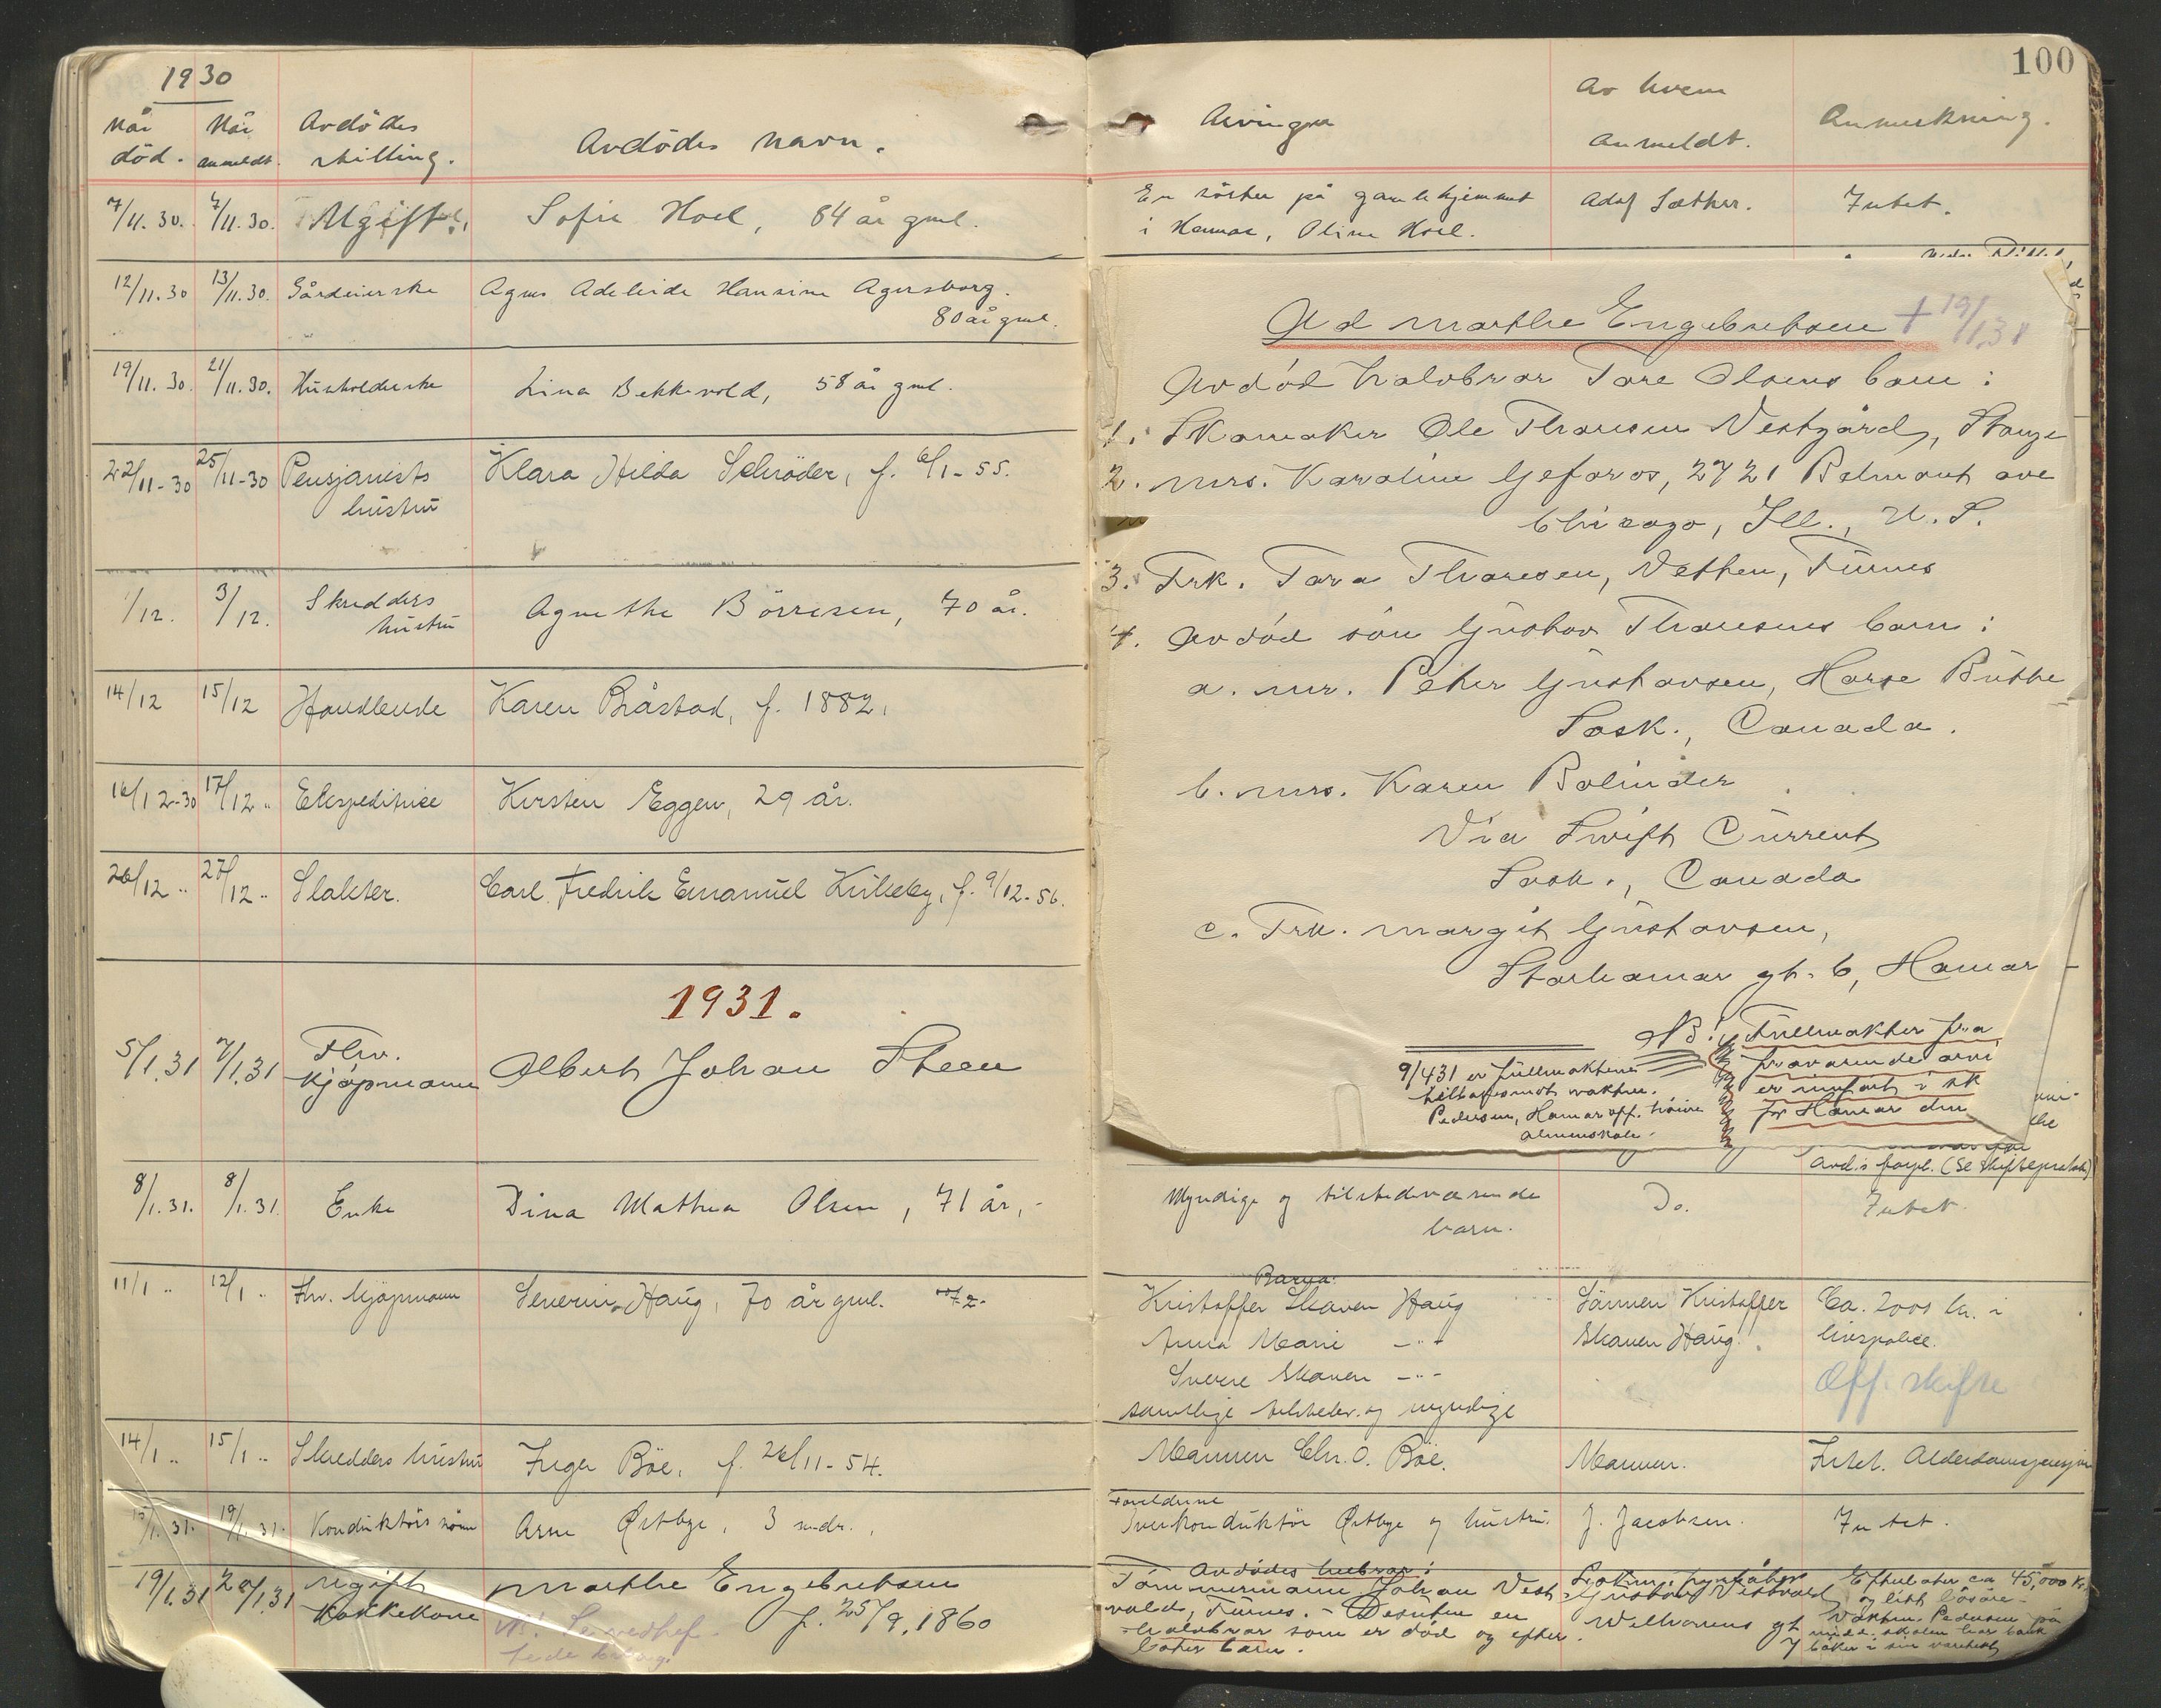 1930
Når død.
Når anmeldt.
Avdødes stilling.
Avdødes navn.
7/11. 30.
7/11. 30.
Ugift.
Sofie Hoel, 84 år gml.
12/11. 30
13/11. 30.
Gårdeierske
Agnes Adeleide Hansine Agersborg.
80 år gml.
19/11. 30.
21/11. 30.
Husholderske
Lina Bekkevold, 58 år gml.
22/11-30
25/11-30
Pensjonists
hustru
Klara Hilda Schrøder, f. 6/1-55.
1/12.
3/12.
Skredders
hustru
Agnethe Börresen, 70 år.
14/12
15/12
Handlende
Karen Bråstad, f. 1882.
16/12-30
17/12 "
Ekspeditrise
Kirsten Eggen, 29 år.
26/12 "
27/12 "
Slakter.
Carl Fredrik Emanuel f. 9/12-56.
1931.
5/1.31
7/1.31
Fhv.
Kjøpmann
Albert Johan Steen
8/1.31.
8/1.31.
Enke
Dina Mathea Olsen, 71 år,-
11/1 "
12/1 "
Fhv. kjøpmann
Severin Haug, 70 år gml.
14/1 "
15/1 "
Skredders hustru
Inger Böe, f. 26/11-54.
15/1.31.
19/1.31.
Konduktörs sönn
Arne Østbye, 3 mdr.,
19/1.31
20/1.31
Ugift
Kokkekone
Marthe Engebretsen
f. 25/9.1860
100
Arvinger
Av hvem
anmeldt.
Anmerkning.
En söster på gamlehjemmet
i Hamar, Oline Hoel.
Adolf Sæther.
Intet.
Ad Marthe Engebretsen † 19/1.31
Avdød halvbror Tore Olsens barn:
1. Skomaker Ole Thoresen Vestgård, Stange
2. Mrs. Karoline Gjefaros, 2721 Belmont ave
Chicago, Ill., U. S.
3. Frk. Tora Thoresen, Vethen, Furnes
4. Avdød sön Gustav Thoresens barn:
a. Mr. Peter Gustavsen, Horse Butte
Sask., Canada.
b. Mrs. Karen Bolinder
Via Swift Current
Sask., Canada
c. Frk. Margit Gustavsen,
Storhamar gt. 6, Hamar
NB! Fullmakter fra
fraværende arvi
er innført i sk
for Hamar den
9/4 31 er fullmaktene
tilbakesendt vaktm.
Pedersen, Hamar off. höiere
almenskole.
avd.s forpl. (Se skifteprotok)
Myndige og tilstedeværende
barn.
Do.
Intet.
Barna:
Kristoffer Skaven Haug
Anna Marie -"-
Sverre Skaven -"-
samtlige tilstedev. og myndige
Sönnen Kristoffer
Skaven Haug.
Ca. 2000 kr. i
livspolice.
Off. skifte
Mannen Chr. O. Böe.
Mannen.
Intet. Alderdomspensjon
Foreldrene
Overkonduktör Østbye og hustru.
J. Jacobsen.
Intet.
Avdødes helbror:
Tömmermann Johan Vest-
vold, Furnes. - Desuten en
halvbror som er död og efter-
later barn.
Gustav Vestvold
Efterlater ca 45,000 kr.
og litt lösöre.
Vaktm. Pedersen på